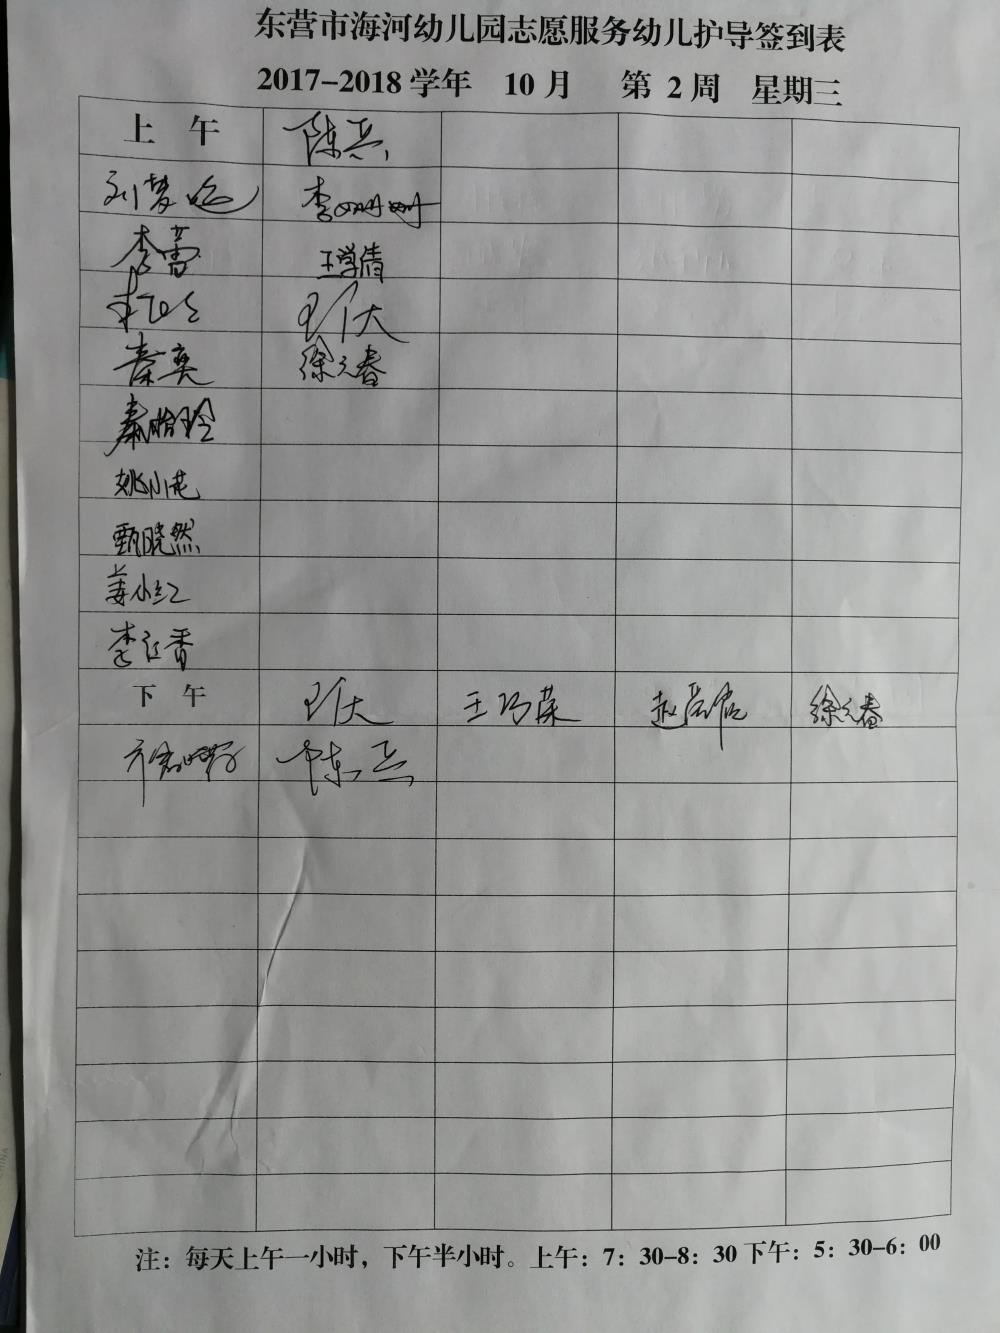 东营市海河幼儿园志愿服务幼儿护导签到表
2017-2018 学年 10 月 第 2 周 星期三
上 午 陈兵
刘梦 李姗姗
李蕾 王学倩
秦奕 徐元春
秦怡玲
姚小花
甄晓然
姜小红
李红香
下 午 王巧荣 赵 徐元春
陈兵
注：每天上午一小时，下午半小时。上午：7：30-8：30 下午：5：30-6：00